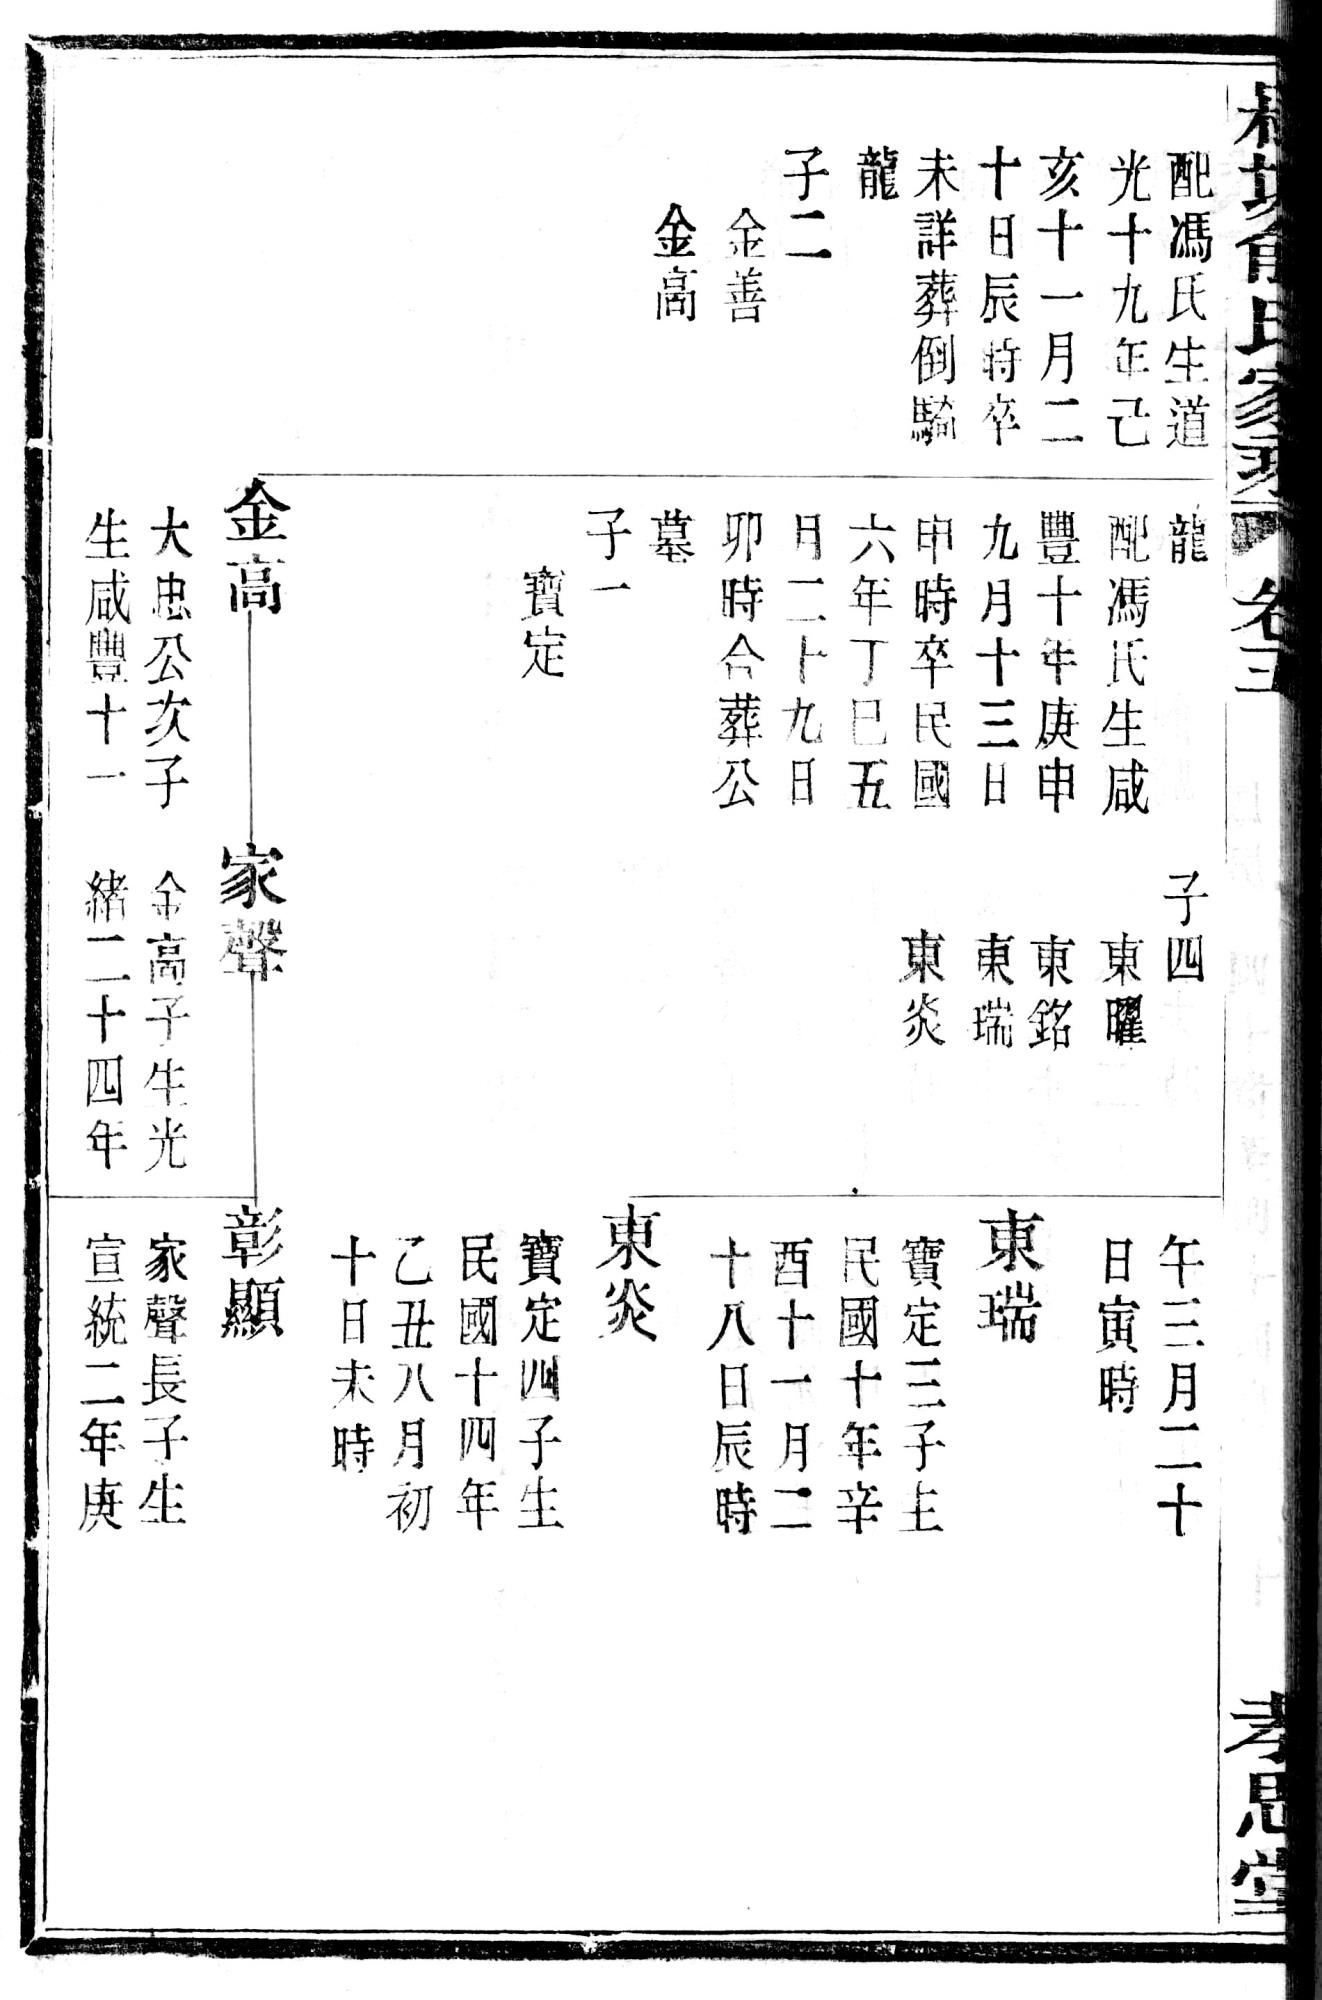 氏家
卷
孝思堂
配馮氏生道
光十九年己
亥十一月二
十日辰時卒
未詳葬倒騎
龍
子二
金善
金高
龍
配馮氏生咸
豐十年庚申
九月十三日
申時卒民國
六年丁巳五
月二十九日
卯時合葬公
墓
子一
寶定
金高
大忠公次子
生咸豐十一
子四
東曜
東銘
東瑞
東炎
家聲
金高子生光
緒二十四年
午三月二十
日寅時
東瑞
寶定三子生
民國十年辛
酉十一月二
十八日辰時
東炎
寶定四子生
民國十四年
乙丑八月初
十日未時
彰顯
家聲長子生
宣統二年庚